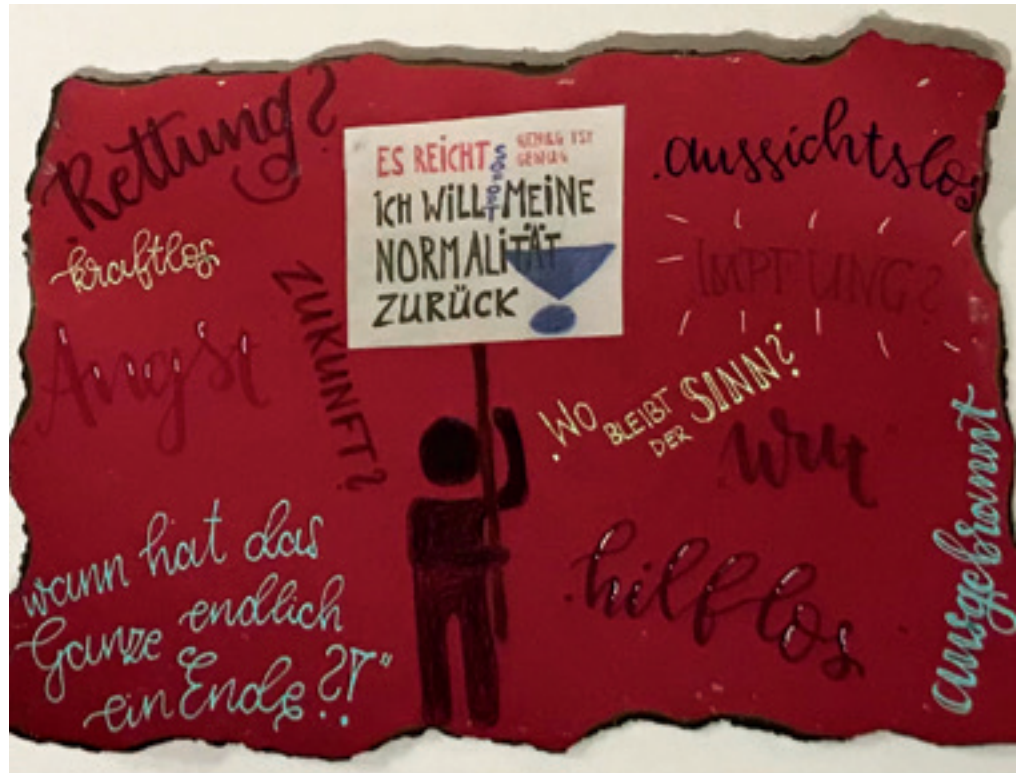 Rettung?
kraftlos
Angst
ZUKUNFT?
ES REICHT
GENUG IST
GENUG
SOFORT
ICH WILL MEINE
NORMALITÄT
ZURÜCK!
aussichtslos
IMPFUNG?
"WO BLEIBT DER SINN?"
Wut
hilflos
ausgebrannt
wann hat das
Ganze endlich
ein Ende?!"